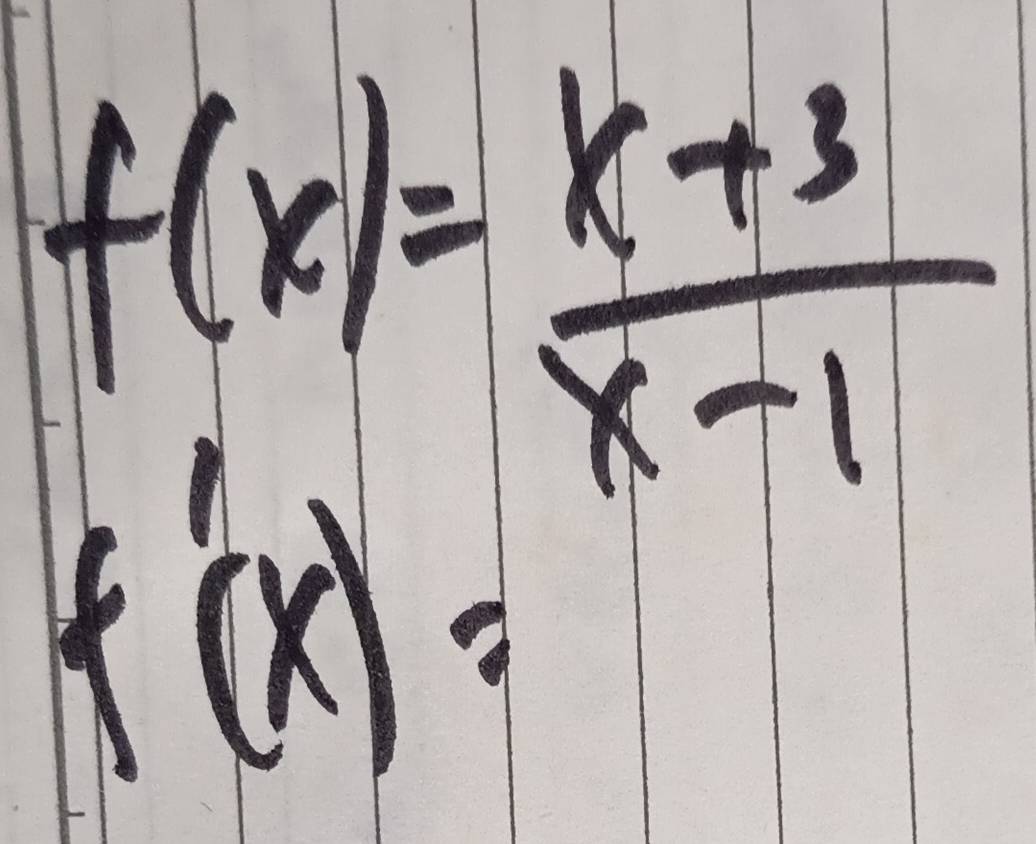 f(x) = \frac{x+3}{x-1}
f'(x) =